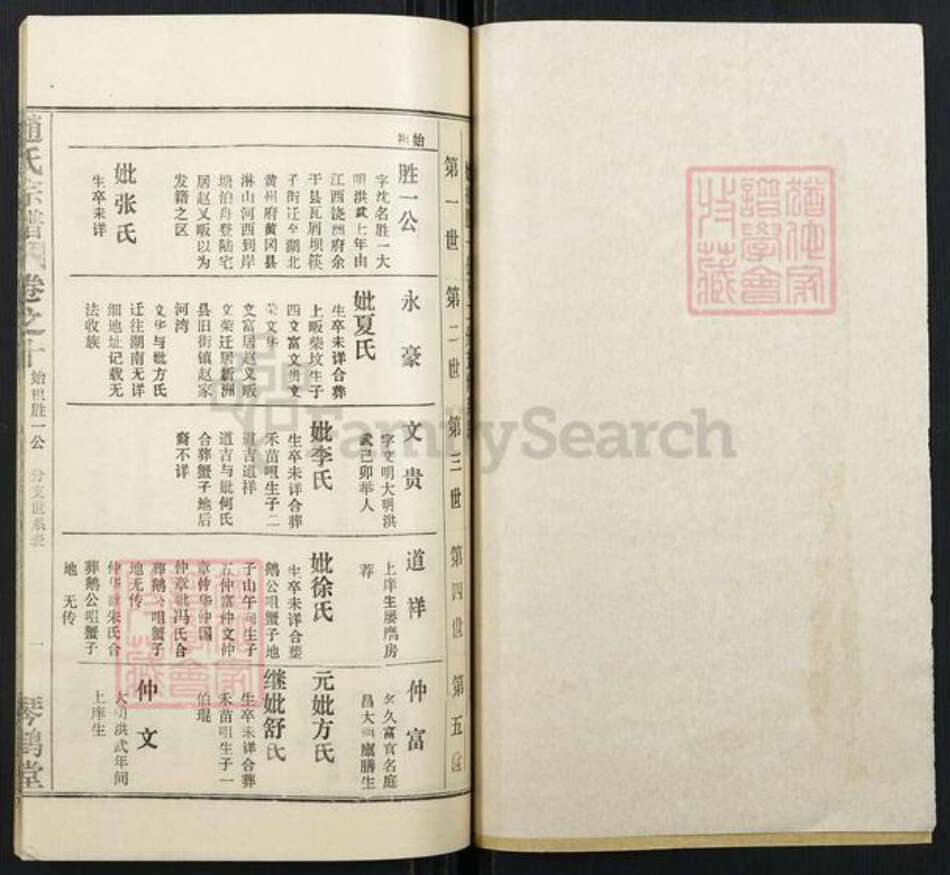 第一世
始祖
胜一公
字沈名胜一大
明洪武上年由
江西饶洲府余
干县瓦屑坝筷
子街迁至湖北
黄州府黄冈县
淋山河西到岸
塘泊舟登陆宅
居赵叉畈以为
发籍之区
妣张氏
生卒未详
第二世
永豪
妣夏氏
生卒未详合葬
上畈柴坟生子
四文富文贵文
荣文华
文富居赵叉畈
文荣迁居新洲
县旧街镇赵家
河湾
文华与妣方氏
迁往湖南无详
细地址记载无
法收族
第三世
文贵
字文明大明洪
武己卯举人
妣李氏
生卒未详合葬
禾苗咀生子二
道吉道祥
道吉与妣何氏
合葬蟹子地后
裔不详
第四世
道祥
上庠生屡膺房
荐
妣徐氏
生卒未详合葬
鹅公咀蟹子地
子山午向生子
五仲富仲文仲
章仲华仲国
仲章妣冯氏合
葬鹅公咀蟹子
地无传
仲华妣朱氏合
葬鹅公咀蟹子
地 无传
第五世
仲富
名庭
昌大明廪膳生
元妣方氏
继妣舒氏
生卒未详合葬
禾苗咀生子一
伯琨
仲文
大明洪武年间
上庠生
赵氏宗谱 卷之十 始祖胜一公 分支世系表 一 琴鹤堂
FamilySearch